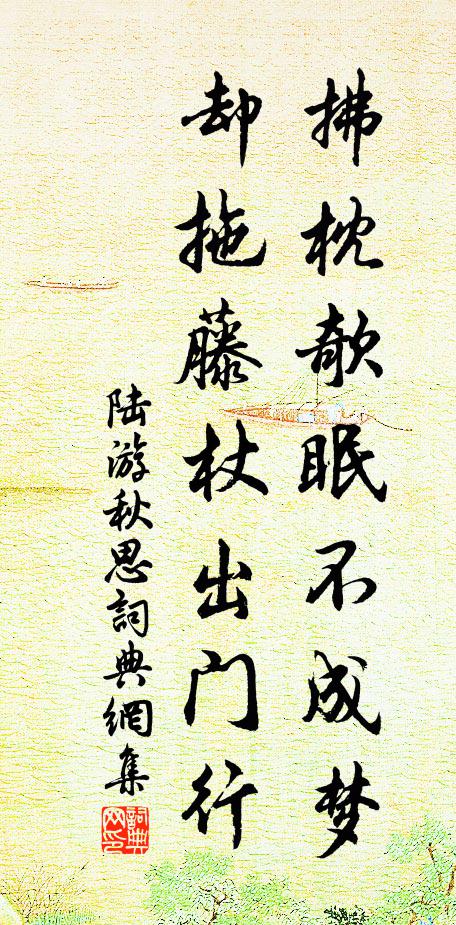 拂枕欹眠不成梦
却拖藤杖出门行
陆游秋思詞典網集
詞典
网印